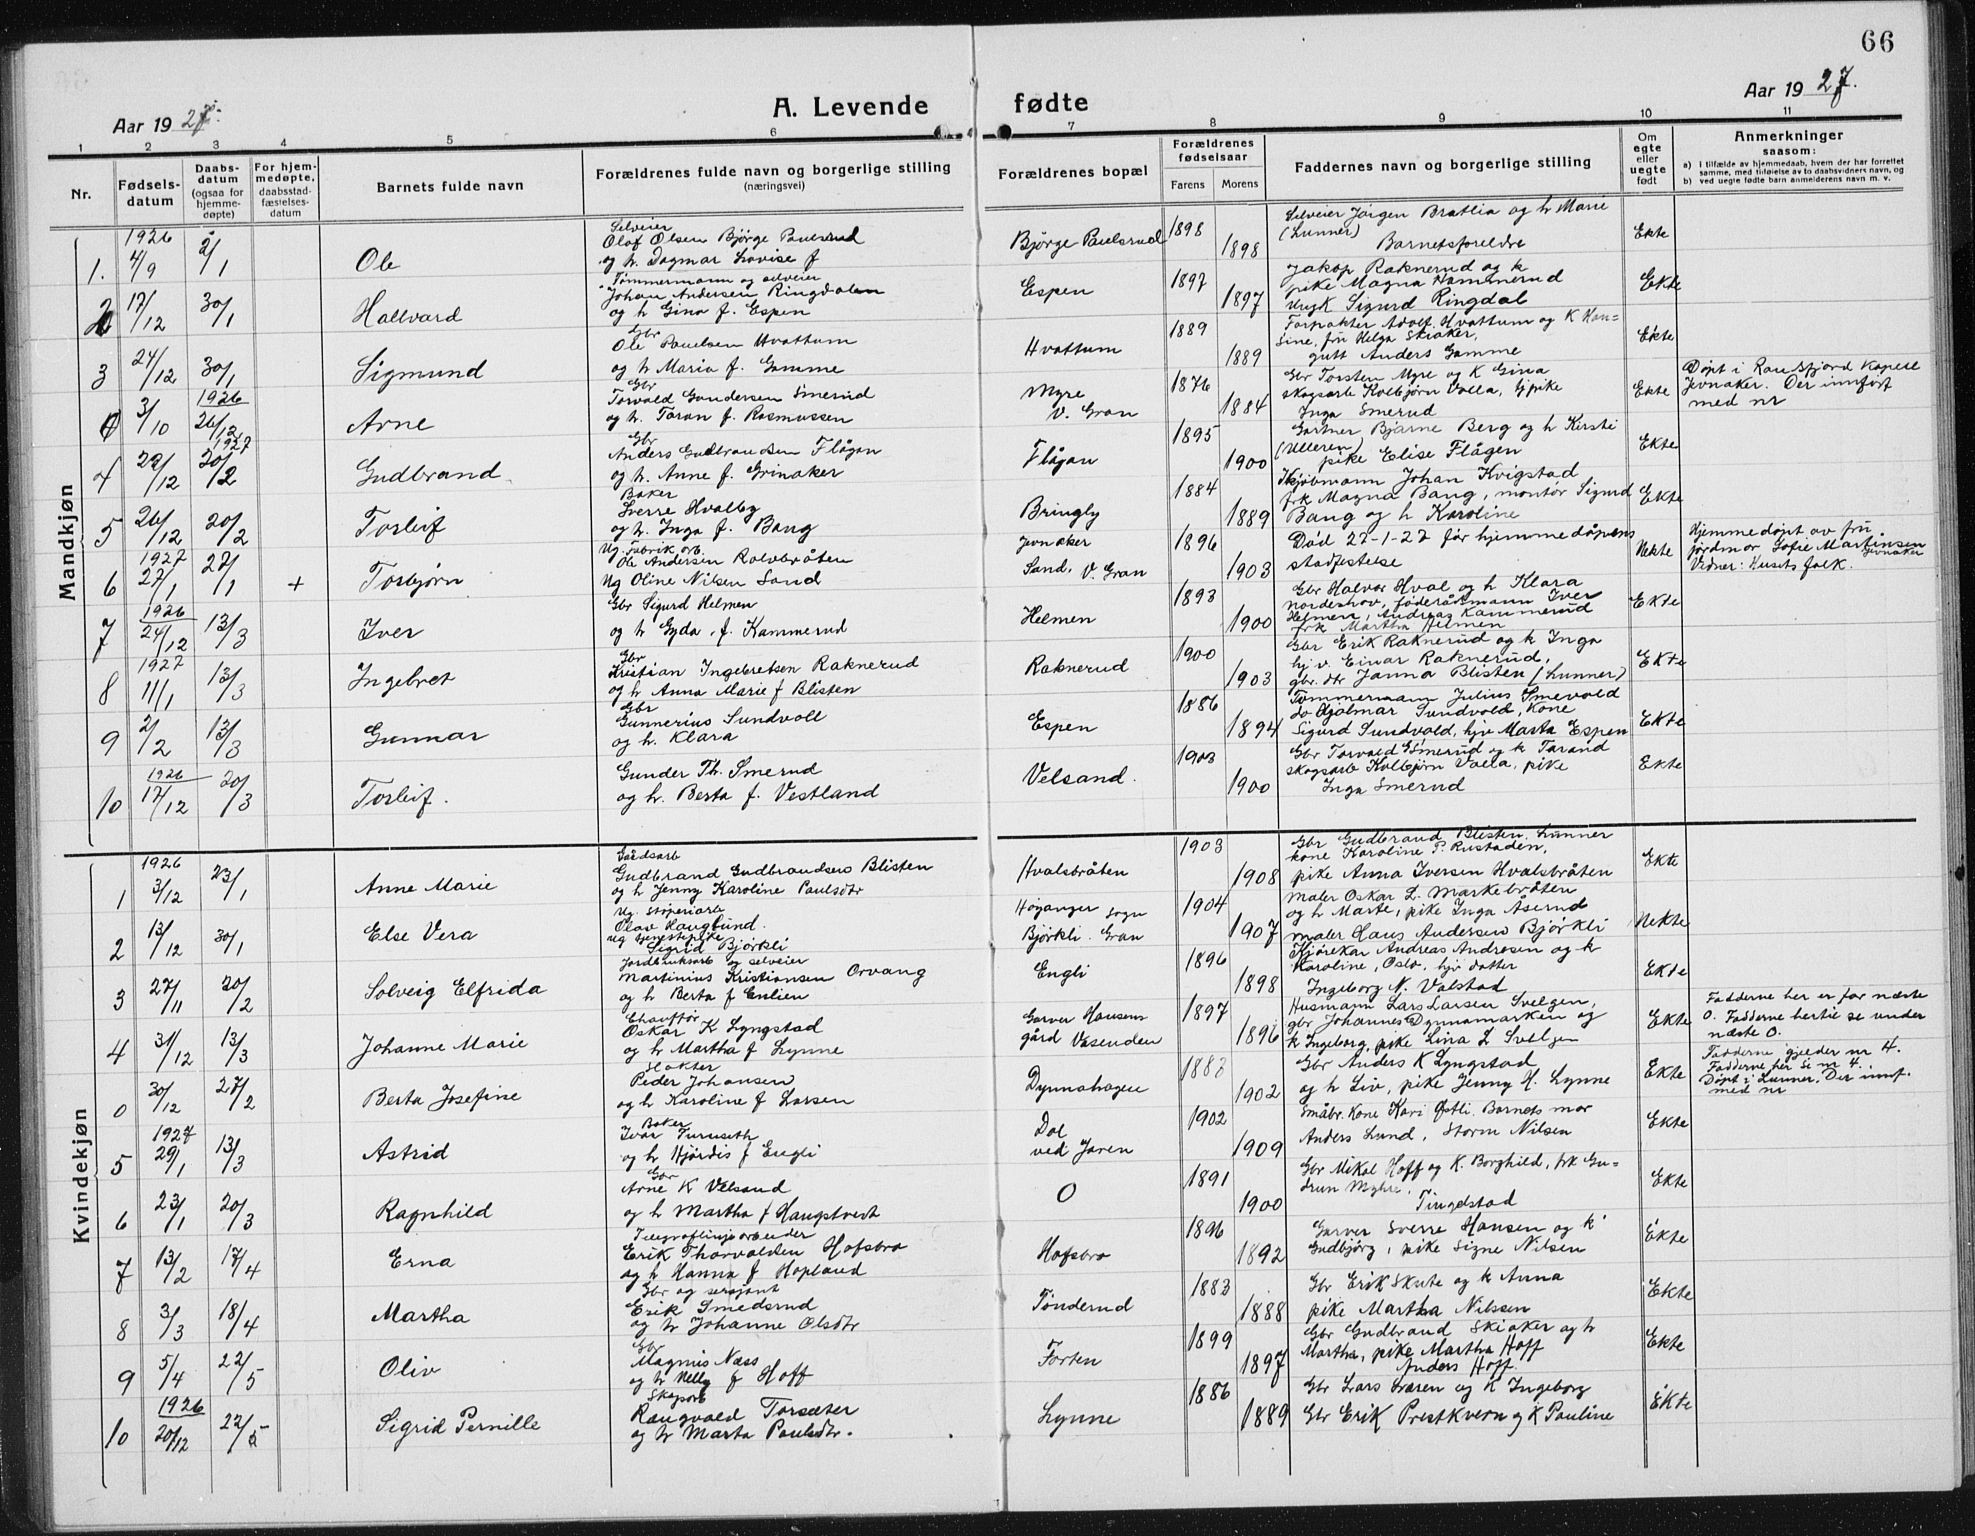 66
Aar 1927.
A. Levende fødte
Aar 1927.
1 2 3 4 5 6 7 8 9 10 11
Nr.
Fødsels-
datum
Daabs-
datum
(ogsaa for
hjemme-
døpte)
For hjem-
medøpte,
daabsstad-
fæstelses-
datum
Barnets fulde navn
Forældrenes fulde navn og borgerlige stilling
(næringsvei)
Forældrenes bopæl
Forældrenes
fødselsaar
Farens Morens
Faddernes navn og borgerlige stilling
Om
egte
eller
uegte
født
Anmerkninger
saasom:
a) i tilfælde av hjemmedaab, hvem der har forrettet
samme, med tilføielse av to daabsvidners navn, og
b) ved uegte fødte barn anmelderens navn m. v.
Mandkjøn
1. 1926 4/9 2/1 Ole
Selveier
Olaf Olsen Bjørge Paulsrud
og h. Dagmar Lovise f
Bjørge-Paulsrud 1898 1898
Selveier Jørgen Bratlia og h Marie
(Lunner) Barnetsforeldre
Ekte
2 17/12 30/1 Hallvard
Tømmermann og selveier
Johan Andersen Ringdalen
og h Gina f. Espen
Espen 1897 1897
Jakop Raknerud og k
pike Magna Hammerud
Ungk Sigurd Ringdal
Ekte
3 24/12 30/1 Sigmund
Gbr
Ole Paulsen Hvattum
og h Maria f. Gamme
Hvattum 1889 1889
Forpakter Adolf Hvattum og K Han-
sine, fru Helga Skiaker,
gutt Anders Gamme
Ekte
0 3/10 1926 26/12 Arne
Gbr
Torvald Gundersen Smerud
og h. Taran f. Rasmussen
Myre
V. Gran 1876 1884
Gbr Torsten Myre og K Gina
skogsarb Kolbjørn Valla, hjpike
Inga Smerud
Ekte
Døpt i Randsfjord Kapell
Jevnaker. Der innført
med nr
4 29/12 1927 20/2 Gudbrand
Gbr
Anders Gudbrandsen Flågan
og h. Anne f. Grinaker
Flågan 1895 1900
Gartner Bjarne Berg og h Kirsti
(Ulleren)
pike Elise Flågen
Ekte
5 26/12 20/2 Torleif
Baker
Sverre Hvalby
og h. Inga f. Bang
Bringly 1884 1889
Kjøbmann Johan Kvigstad
frk Magna Bang, montør Sigurd
Bang og h Karoline
Ekte
6 1927 27/1 27/1 + Torbjørn
Ug. Fabrik arb.
Ole Andersen Kalvbråten
Ug Oline Nilsen Sand
Jevnaker
Sand, V. Gran 1896 1903
Død 27-1-27 før hjemmedåpens
stadfestelse
Uekte
Hjemmedøpt av fru
jordmor Gofie Martinsen
Jevnaker
Vidner: Husets folk.
7 1926 24/12 13/3 Iver
Gbr Sigurd Helmen
og h Gyda f. Kammerud
Helmen 1893 1900
Gbr Halvor Hval og h Klara
Nordeshov, føderådsmann Iver
Helmen, Andreas Kammerud
frk Martha Helmen
Ekte
8 1927 11/1 13/3 Ingebret
Gbr
Kristian Ingebretsen Raknerud
og h Anna Marie f Blisten
Raknerud 1900 1903
Gbr Erik Raknerud og k Inga
hjv. Einar Raknerud,
gbr. dtr Janna Blisten (Lunner)
Ekte
9 2/2 13/3 Gunnar
Gbr
Gunnerius Sundvoll
og h. Klara
Espen 1886 1894
Tømmermann Julius Smevold
do Hjalmar Sundvold, kone
Sigurd Sundvold, hjv Marta Espen
Ekte
10 1926 17/12 20/3 Torleif.
Gunder Th. Smerud
og h. Berta f. Vestland
Velsand. 1903 1900
Gbr Torvald Smerud og k Tarand
skogsarb Kolbjørn Valla, pike
Inga Smerud
Ekte
Kvindekjøn
1 1926 3/12 23/1 Anne Marie
Gårdsarb
Gudbrand Gudbrandsens Blisten
og h Jenny Karoline Paulsdtr
Hvalsbråten 1903 1908
Gbr Gudbrand Blisten, Lunner
kone Karoline P. Rustaden,
pike Anna Iversen Hvalsbråten
Ekte
2 13/12 30/1 Else Vera
Ug. støperiarb
Olav Hauglund.
ug tjenestepike
Sigrid Bjørkli
Høyanger Sogn
Bjørkli. Gran 1904 1907
Maler Oskar L. Markebråten
og h Marte, pike Inga Åserud
maler Hans Andersen Bjørkli
Uekte
3 27/11 20/2 Solveig Elfrida
Jordbruksarb og selveier
Martinius Kristiansen Orvang
og h Berta f Enlien
Engli 1896 1898
Kjørekar Andreas Andresen og k
Karoline, Oslo, hjv datter
Ingeborg N. Valstad
Ekte
4 31/12 13/3 Johanne Marie
Chauffør
Oskar K Lyngstad
og h Martha f Lynne
Garver Hansens
gård Vasenden 1897 1896
Husmann Lars Larsen Svelgen,
gbr Johannes Dynnamarken og
k Ingeborg, pike Lina L Svelgen
Ekte
Fadderne her er for næste
0. Fadderne hertil se under
næste 0.
0 30/12 27/2 Berta Josefine
Slakter
Peder Johansen
og h Karoline f Larsen
Dynnahagen 1883 1902
Gbr Anders K Lyngstad
og h Liv, pike Jenny H. Lynne
Ekte
Fadderne gjelder nr 4.
Fadderne her se nr 4.
Døpt i Lunner. Der innf.
med nr
5 1927 29/1 13/3 Astrid
Baker
Ivar Furuseth
og h Hjørdis f Engli
Dal
ved Jaren 1902 1909
Småbr. kone Kari Østli. Barnets mor
Anders Lund, Storm Nilsen
Ekte
6 23/1 20/3 Ragnhild
Gbr
Arne K Velsand
og h Martha f Haugstvedt
O 1891 1900
Gbr Mikal Hoff og K. Borghild, frk Gu-
drun Myhre,
Tingelstad
Ekte
7 13/2 17/4 Erna
Telegraflinjearbeider
Erik Thorvaldsen Hofsbro
og h Hanna f Hopland
Hofsbro 1896 1892
Garver Sverre Hansen og k
Gudbjørg, pike Signe Nilsen
Ekte
8 3/3 18/4 Martha
Gbr og sersjant
Erik Smedsrud
og h Johanne Olsdtr
Tønderud 1883 1888
Gbr Erik Skute og k Anna
pike Martha Nilssen
Ekte
9 5/4 22/5 Oliv
Gbr
Magnus Næss
og h Nelly f Hoff
Forten 1899 1897
Gbr Gudbrand Skiaker og h
Martha, pike Martha Hoff
Anders Hoff.
Ekte
10 1926 20/12 22/5 Sigrid Pernille
Skogsarb
Rangvald Torsæter
og h Marta Paulsdtr.
Lynne 1886 1889
Gbr Lars Løsen og K Ingeborg
Gbr Erik Prestkvern og K Pauline
Ekte